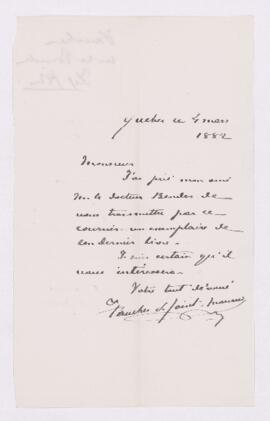 Québec ce 4 mars
1882
Monsieur
J'ai prié mon ami
M. le docteur Bender de
vous transmettre par ce
courrier un exemplaire de
son dernier livre.
Je suis certain qu'il
vous intéressera.
Votre tout dévoué
Faucher de Saint-Maurice